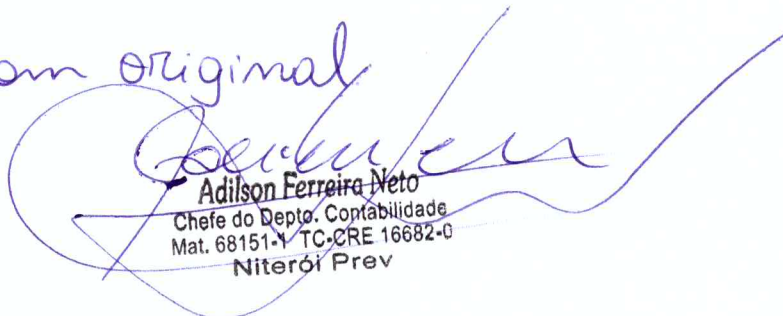 om original
Adilson Ferreira Neto
Chefe do Depto. Contabilidade
Mat. 68151-1 TC-CRE 16682-0
Niterói Prev